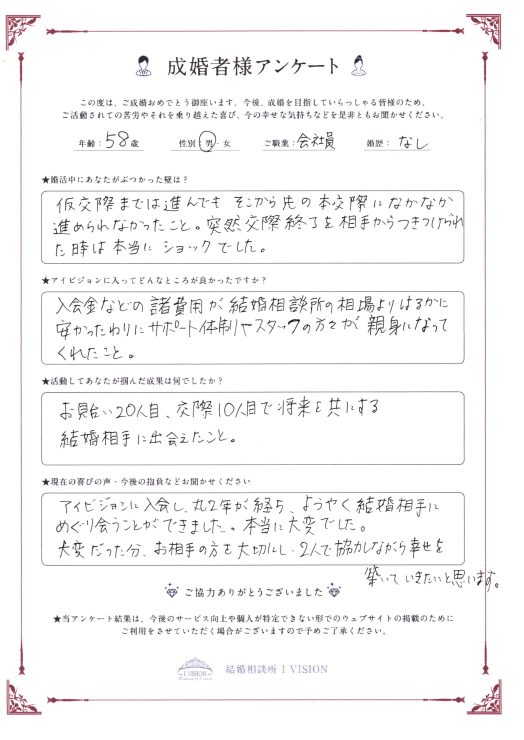 成婚者様アンケート
この度は、ご成婚おめでとう御座います。今後、成婚を目指していらっしゃる皆様のため、
ご活動されての苦労やそれを乗り越えた喜び、今の幸せな気持ちなどを是非ともお聞かせください。
年齢：58歳 性別：男・女 ご職業：会社員 婚歴：なし
★婚活中にあなたがぶつかった壁は？
仮交際までは進んでも そこから先の本交際になかなか
進められなかったこと。突然交際終了を相手からつきつけられ
た時は本当に ショックでした。
★アイビジョンに入ってどんなところが良かったですか？
入会金などの諸費用が結婚相談所の相場よりはるかに
安かったわりにサポート体制やスタッフの方々が親身になって
くれたこと。
★活動してあなたが掴んだ成果は何でしたか？
お見合い20人目、交際10人目で将来を共にする
結婚相手に出会えたこと。
★現在の喜びの声・今後の抱負などお聞かせください
アイビジョンに入会し、丸2年が経ち、ようやく結婚相手に
めぐり会うことができました。本当に大変でした。
大変だった分、お相手の方を大切にし、2人で協力しながら幸せを
築いていきたいと思います。
ご協力ありがとうございました
★当アンケート結果は、今後のサービス向上や個人が特定できない形でのウェブサイトの掲載のために
ご利用をさせていただく場合がございますので予めご了承ください。
I VISION
結婚相談所 I VISION